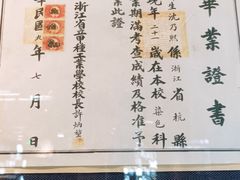 畢業證書
生沈乃熙係浙江省杭縣
年二十一歲在本校染色科
業期滿考查成績及格准予
業此證
浙江省立甲種工業學校校長許炳堃
民國九年七月日